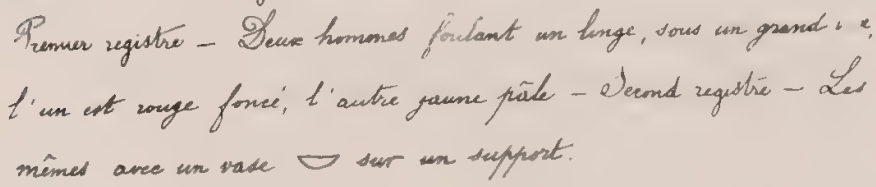 Premier registre — Deux hommes foulant un linge, sous un grand
l'un est rouge foncé, l'autre jaune pâle — Second registre — Les
mêmes avec un vase sur un support.